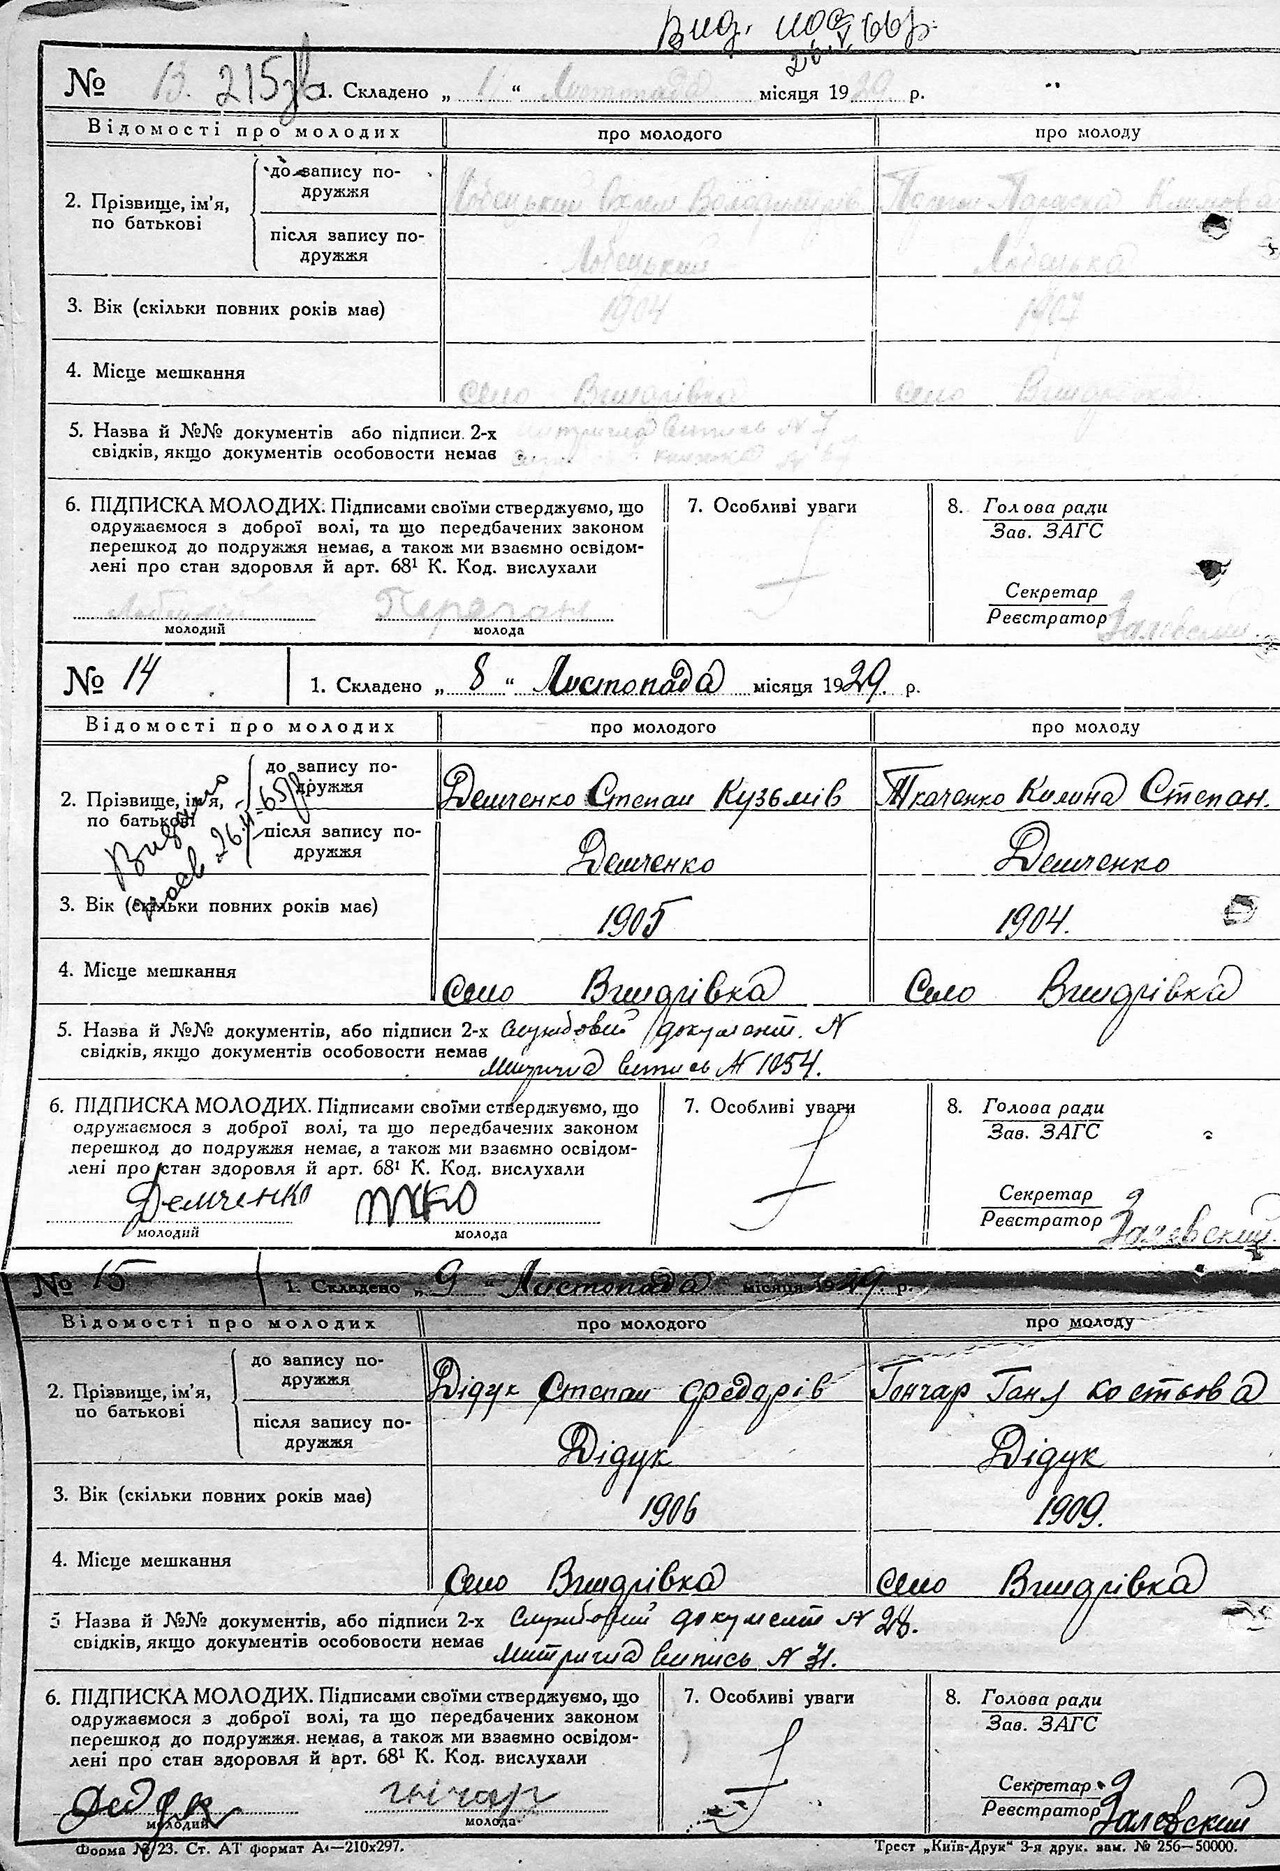 Вид.
26.V.66р.
№ 13. 215зв 1. Складено „ 1 “ Листопада місяця 1929 р.
Відомості про молодих про молодого про молоду
2. Прізвище, ім’я, по батькові
до запису подружжя Лобецький Володимирів Параска Климова
після запису подружжя Лобецький Лобецька
3. Вік (скільки повних років має) 1904 1907
4. Місце мешкання село село
5. Назва й №№ документів або підписи 2-х № 7
свідків, якщо документів особовости немає книжка №
6. ПІДПИСКА МОЛОДИХ. Підписами своїми стверджуємо, що
одружаємося з доброї волі, та що передбачених законом
перешкод до подружжя немає, а також ми взаємно освідом-
лені про стан здоровля й арт. 68¹ К. Код. вислухали
7. Особливі уваги
8. Голова ради
Зав. ЗАГС
Секретар
Реєстратор Залевский
молодий молода
№ 14 1. Складено „ 8 “ Листопада місяця 1929. р.
Відомості про молодих про молодого про молоду
2. Прізвище, ім’я, по батькові
до запису подружжя Демченко Степан Кузьмів Ткаченко Килина Степан.
після запису подружжя Демченко Демченко
Видано
26.II-65р
3. Вік (скільки повних років має) 1905 1904.
4. Місце мешкання Село Село
5. Назва й №№ документів, або підписи 2-х Службовий документ. N
свідків, якщо документів особовости немає Метрична випись N 1054.
6. ПІДПИСКА МОЛОДИХ. Підписами своїми стверджуємо, що
одружаємося з доброї волі, та що передбачених законом
перешкод до подружжя немає, а також ми взаємно освідом-
лені про стан здоровля й арт. 68¹ К. Код. вислухали
7. Особливі уваги
8. Голова ради
Зав. ЗАГС
Секретар
Реєстратор Залевский
Демченко ткко
молодий молода
№ 15 1. Складено „ 9 “ Листопада місяця 1929. р.
Відомості про молодих про молодого про молоду
2. Прізвище, ім’я, по батькові
до запису подружжя Дідук Степан Федорів Гончар Ганя Костьова
після запису подружжя Дідук Дідук
3. Вік (скільки повних років має) 1906 1909.
4. Місце мешкання Село село
5 Назва й №№ документів, або підписи 2-х Службовий документ N 28.
свідків, якщо документів особовости немає Метрична випись N 31.
6. ПІДПИСКА МОЛОДИХ. Підписами своїми стверджуємо, що
одружаємося з доброї волі, та що передбачених законом
перешкод до подружжя. немає, а також ми взаємно освідом-
лені про стан здоровля й арт. 68¹ К. Код. вислухали
7. Особливі уваги
8. Голова ради
Зав. ЗАГС
Секретар
Реєстратор Залевский
Дедук гычар
молодий молода
Форма № 23. Ст. АТ формат А₄—210х297. Трест „Київ-Друк“ 3-я друк. зам. № 256—50000.